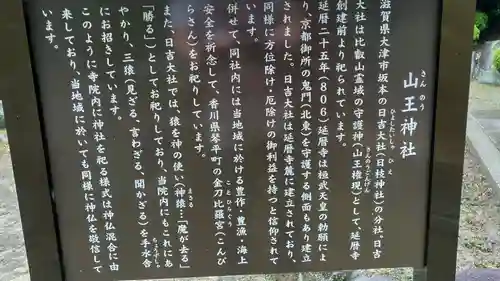 山王神社
さんのう
滋賀県大津市坂本の日吉大社(日枝神社)の分社。日吉
ひよしたいしゃ
大社は比叡山霊域の守護神(山王権現)として、延暦寺
さんのうごんげん
創建前より祀られています。
延暦二十五年(806)延暦寺は桓武天皇の勅願によ
り、京都御所の鬼門(北東)を守護する側面もあり建立
されました。日吉大社は延暦寺麓に建立されており、
同様に方位除け・厄除けの御利益を持つと信仰されて
います。
併せて、同社内には当地域に於ける豊作・豊漁・海上
安全を祈念して、香川県琴平町の金刀比羅宮(こんぴ
ことひらぐう
らさん)をお祀りしています。
また日吉大社では、猿を神の使い(神猿…「魔が去る」
まさる
「勝る」)としてお祀りしており、当院内にもこれにあ
やかり、三猿(見ざる、言わざる、聞かざる)を手水舎
ちょうずしゃ
にお招きしています。
このように寺院内に神社を祀る様式は神仏混合に由
来しており、当地域に於いても同様に神仏を敬信して
います。